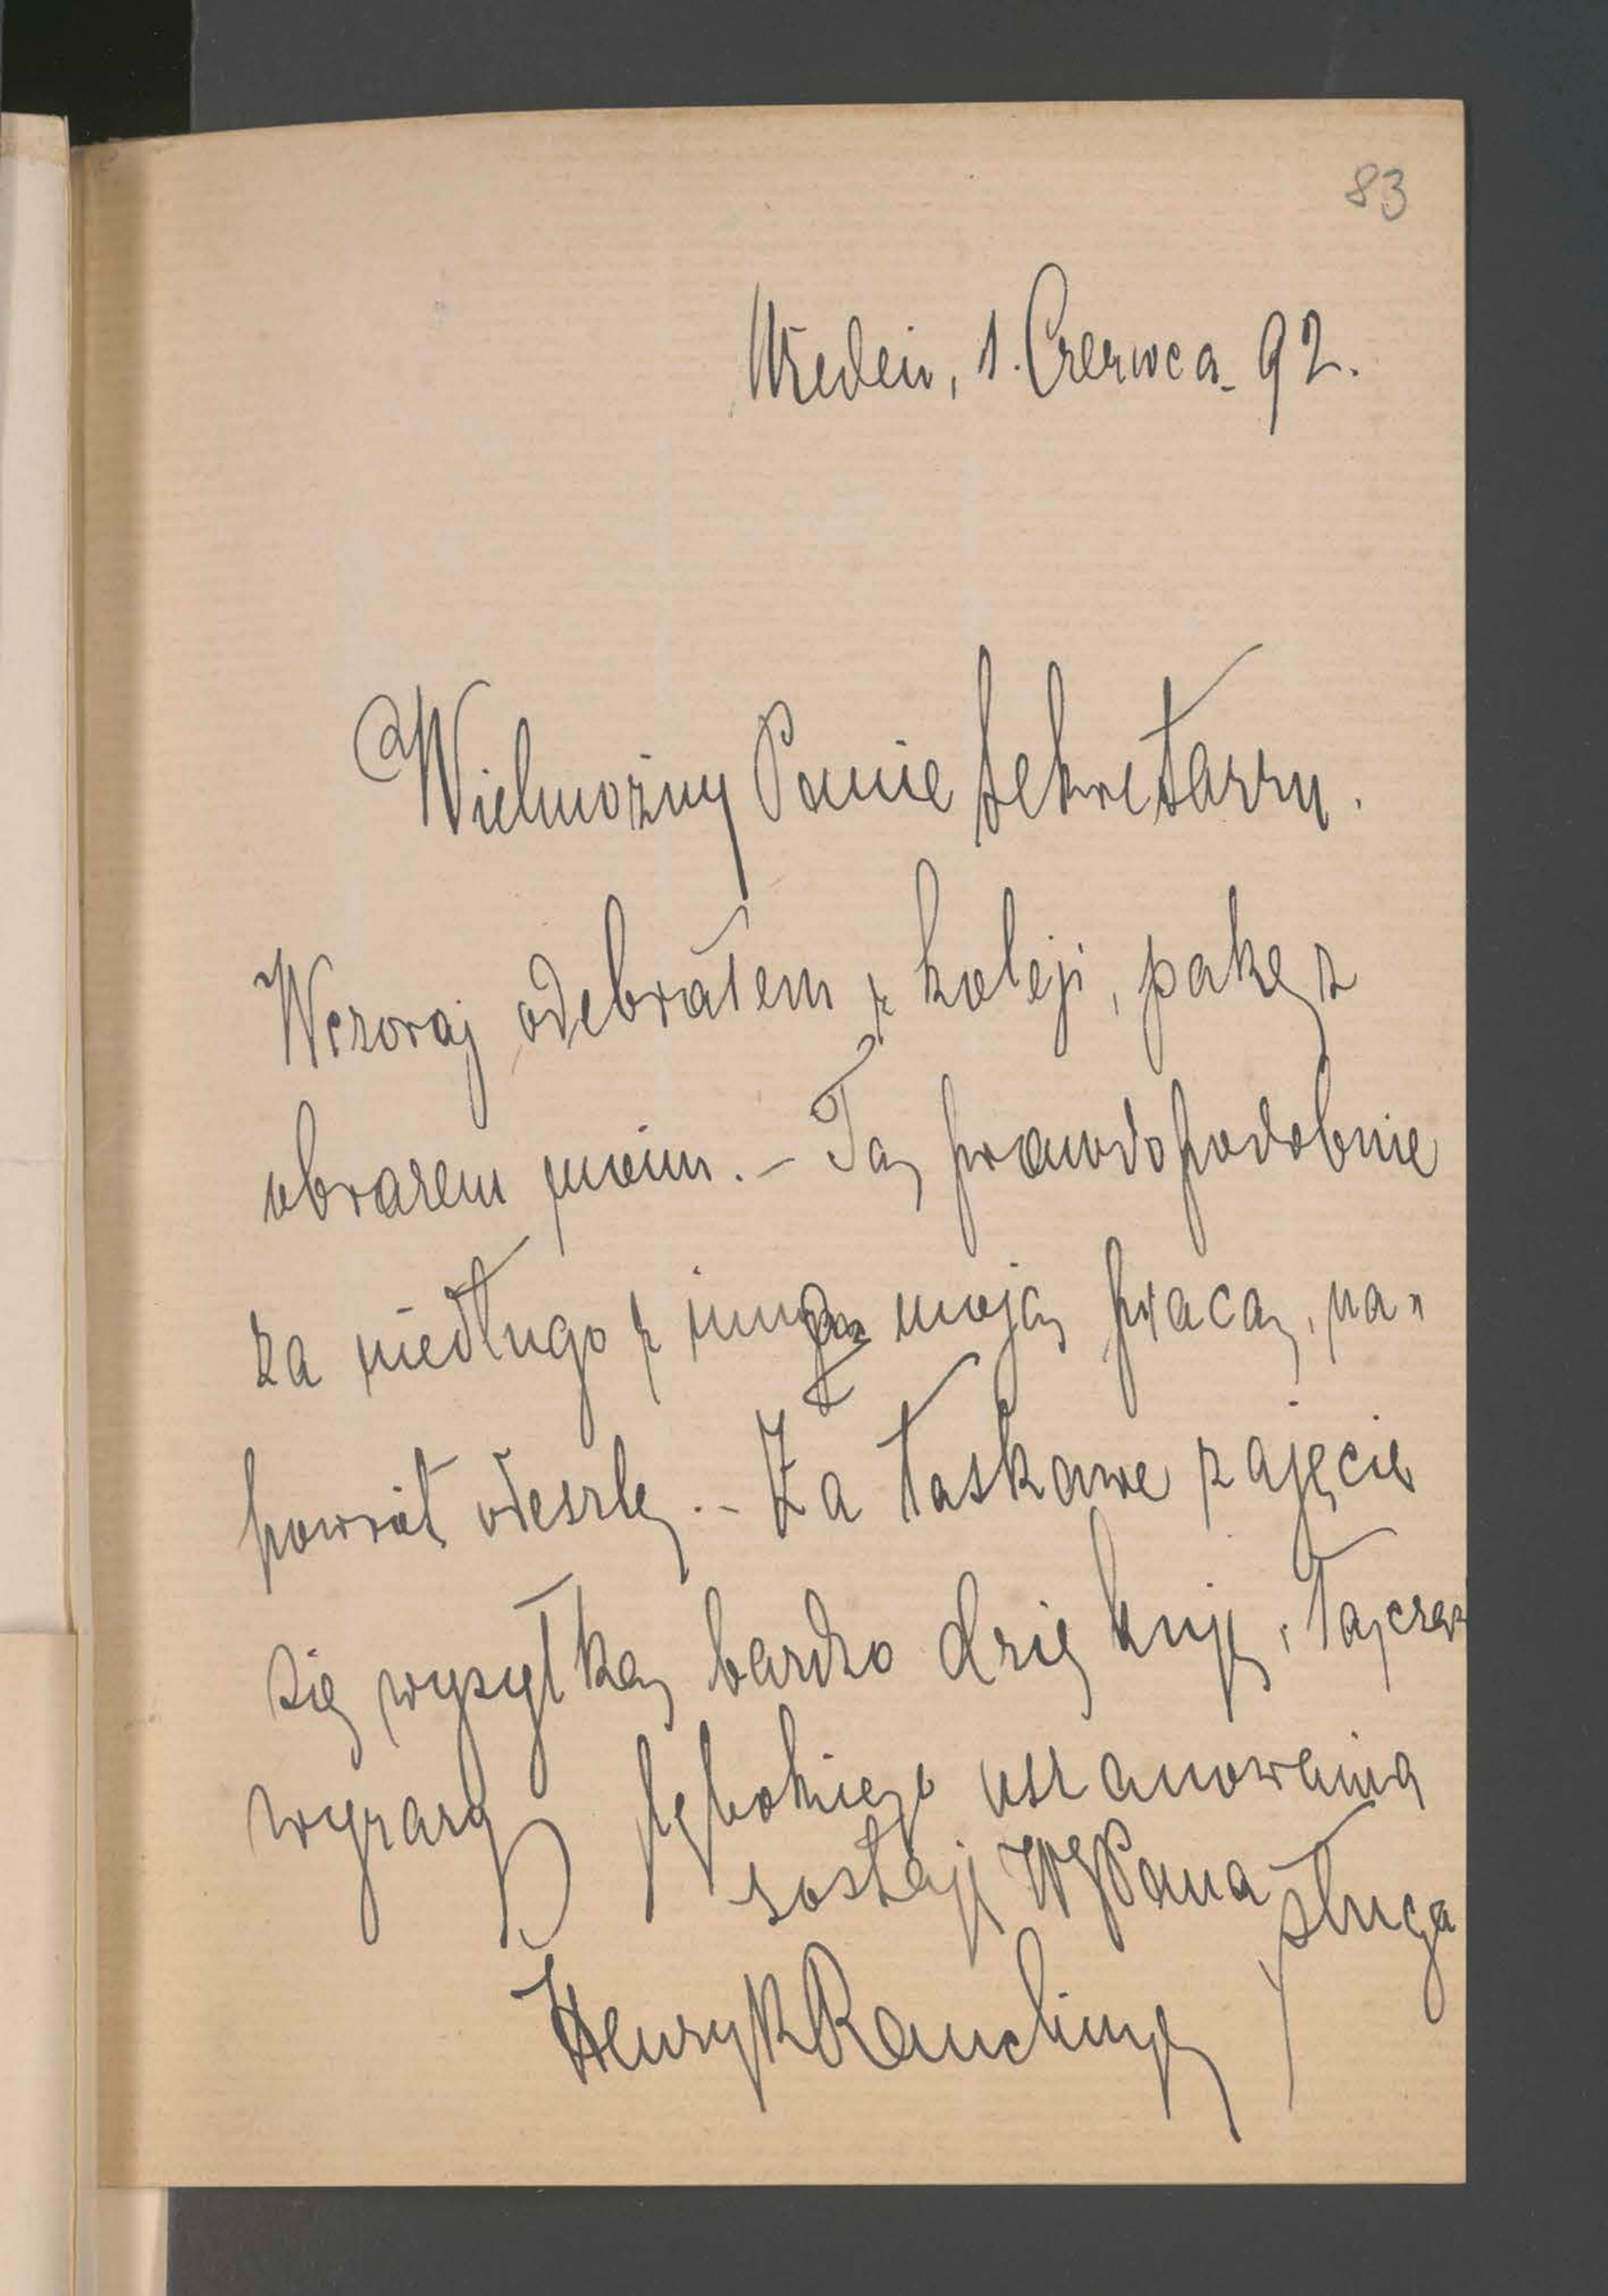 83
Wiedeń, 1. Czerwca 92.
Wielmożny Panie Sekretarzu.
Wczoraj odebrałem z koleji, pakę z
obrazem moim. – Tą prawdopodobnie
za niedługo z inną moją pracą, na„
powrót odeszlę. – Za łaskawe zajęcie
się wysyłką bardzo dziękuję, łącząc
wyrazy głębokiego uszanowania
zostaję WPana sługa
Henryk Rauchinger